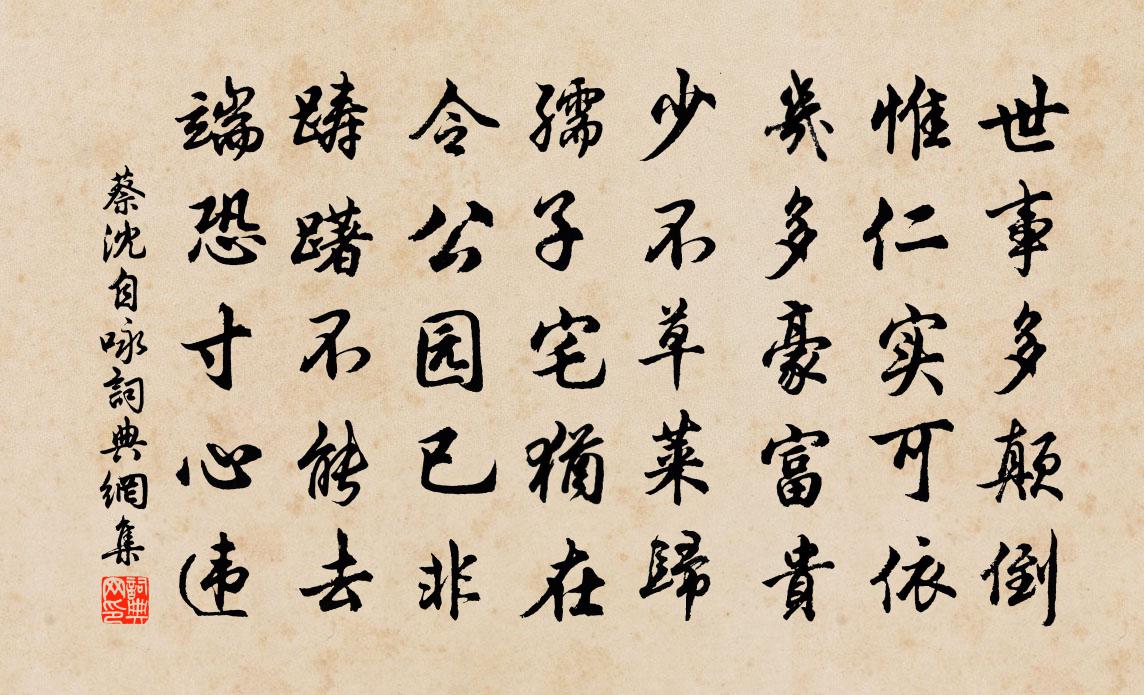 世事多颠倒
惟仁实可依
幾多豪富貴
少不草萊歸
孺子宅猶在
令公园已非
踌躇不能去
端恐寸心违
蔡沈自咏詞典網集
詞典网印